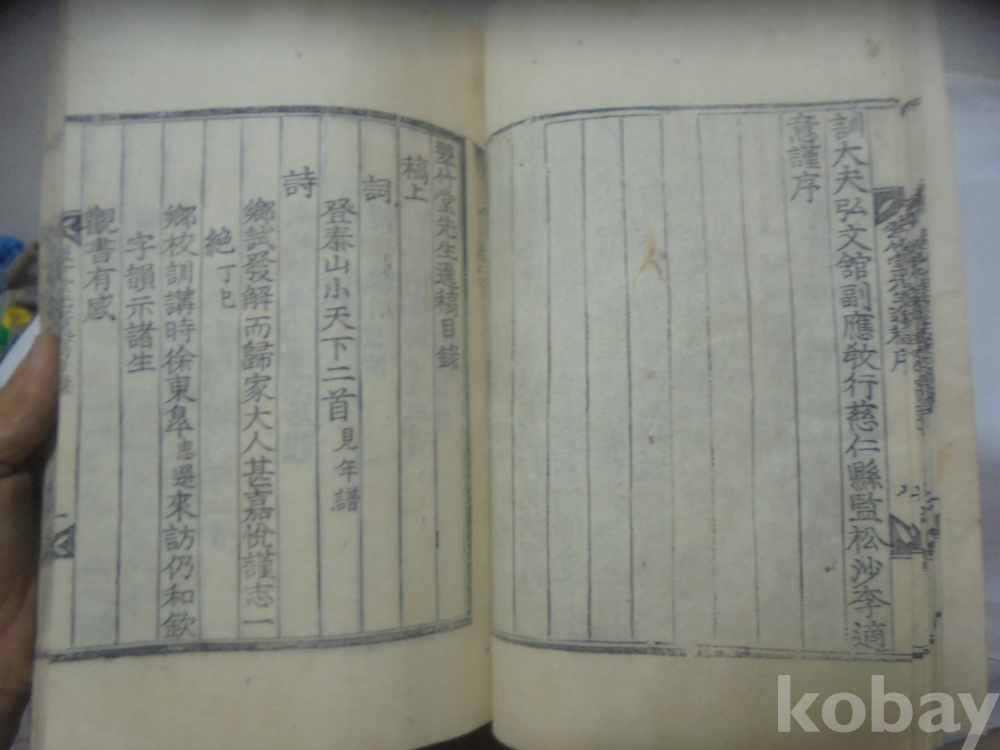 訓大夫弘文舘副應敎行慈仁縣監松沙李適
意謹序
雙竹堂先生遺稿目錄
稿上
詞
登泰山小天下二首見年譜
詩
鄕試發解而歸家大人甚嘉悅謹志一
絶丁巳
鄕校訓講時徐東皐思選來訪仍和欽
字韻示諸生
觀書有感
kobay